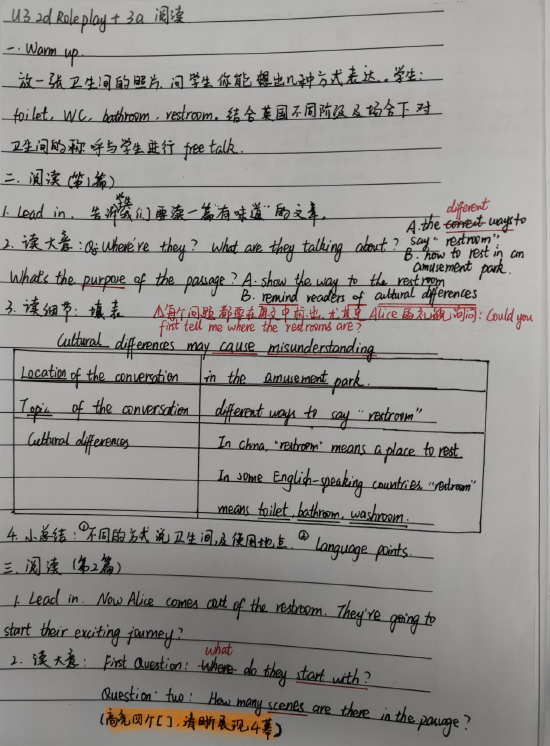 U3 2d Role play + 3a 阅读
一. Warm up.
放一张卫生间的照片, 问学生你能想出几种方式表达。学生:
toilet, WC, bathroom, restroom. 结合英国不同阶段及场合下对
卫生间的称呼与学生进行 free talk.
二. 阅读 (第1篇)
1. Lead in. 告诉学生我们要读一篇"有味道"的文章.
different
A. the correct ways to
say "restroom"
B. how to rest in an
amusement park.
2. 读大意: Q: Where're they? What are they talking about?
What's the purpose of the passage? A. show the way to the restroom
B. remind readers of cultural differences
3. 读细节: 填表
每个问题都要在原文中标出, 尤其是 Alice 的礼貌询问: Could you
first tell me where the restrooms are?
Cultural differences may cause misunderstanding
Location of the conversation in the amusement park.
Topic of the conversation different ways to say "restroom"
Cultural differences In China, "restroom" means a place to rest
In some English-speaking countries, "restroom"
means toilet, bathroom, washroom.
4. 小总结: ①不同的方式说卫生间及使用地点. ② Language points.
三. 阅读 (第2篇)
1. Lead in. Now Alice comes out of the restroom. They're going to
start their exciting journey?
what
2. 读大意: First Question: Where do they start with?
Question two: How many scenes are there in the passage?
(高亮四个[ ], 清晰展现4幕)